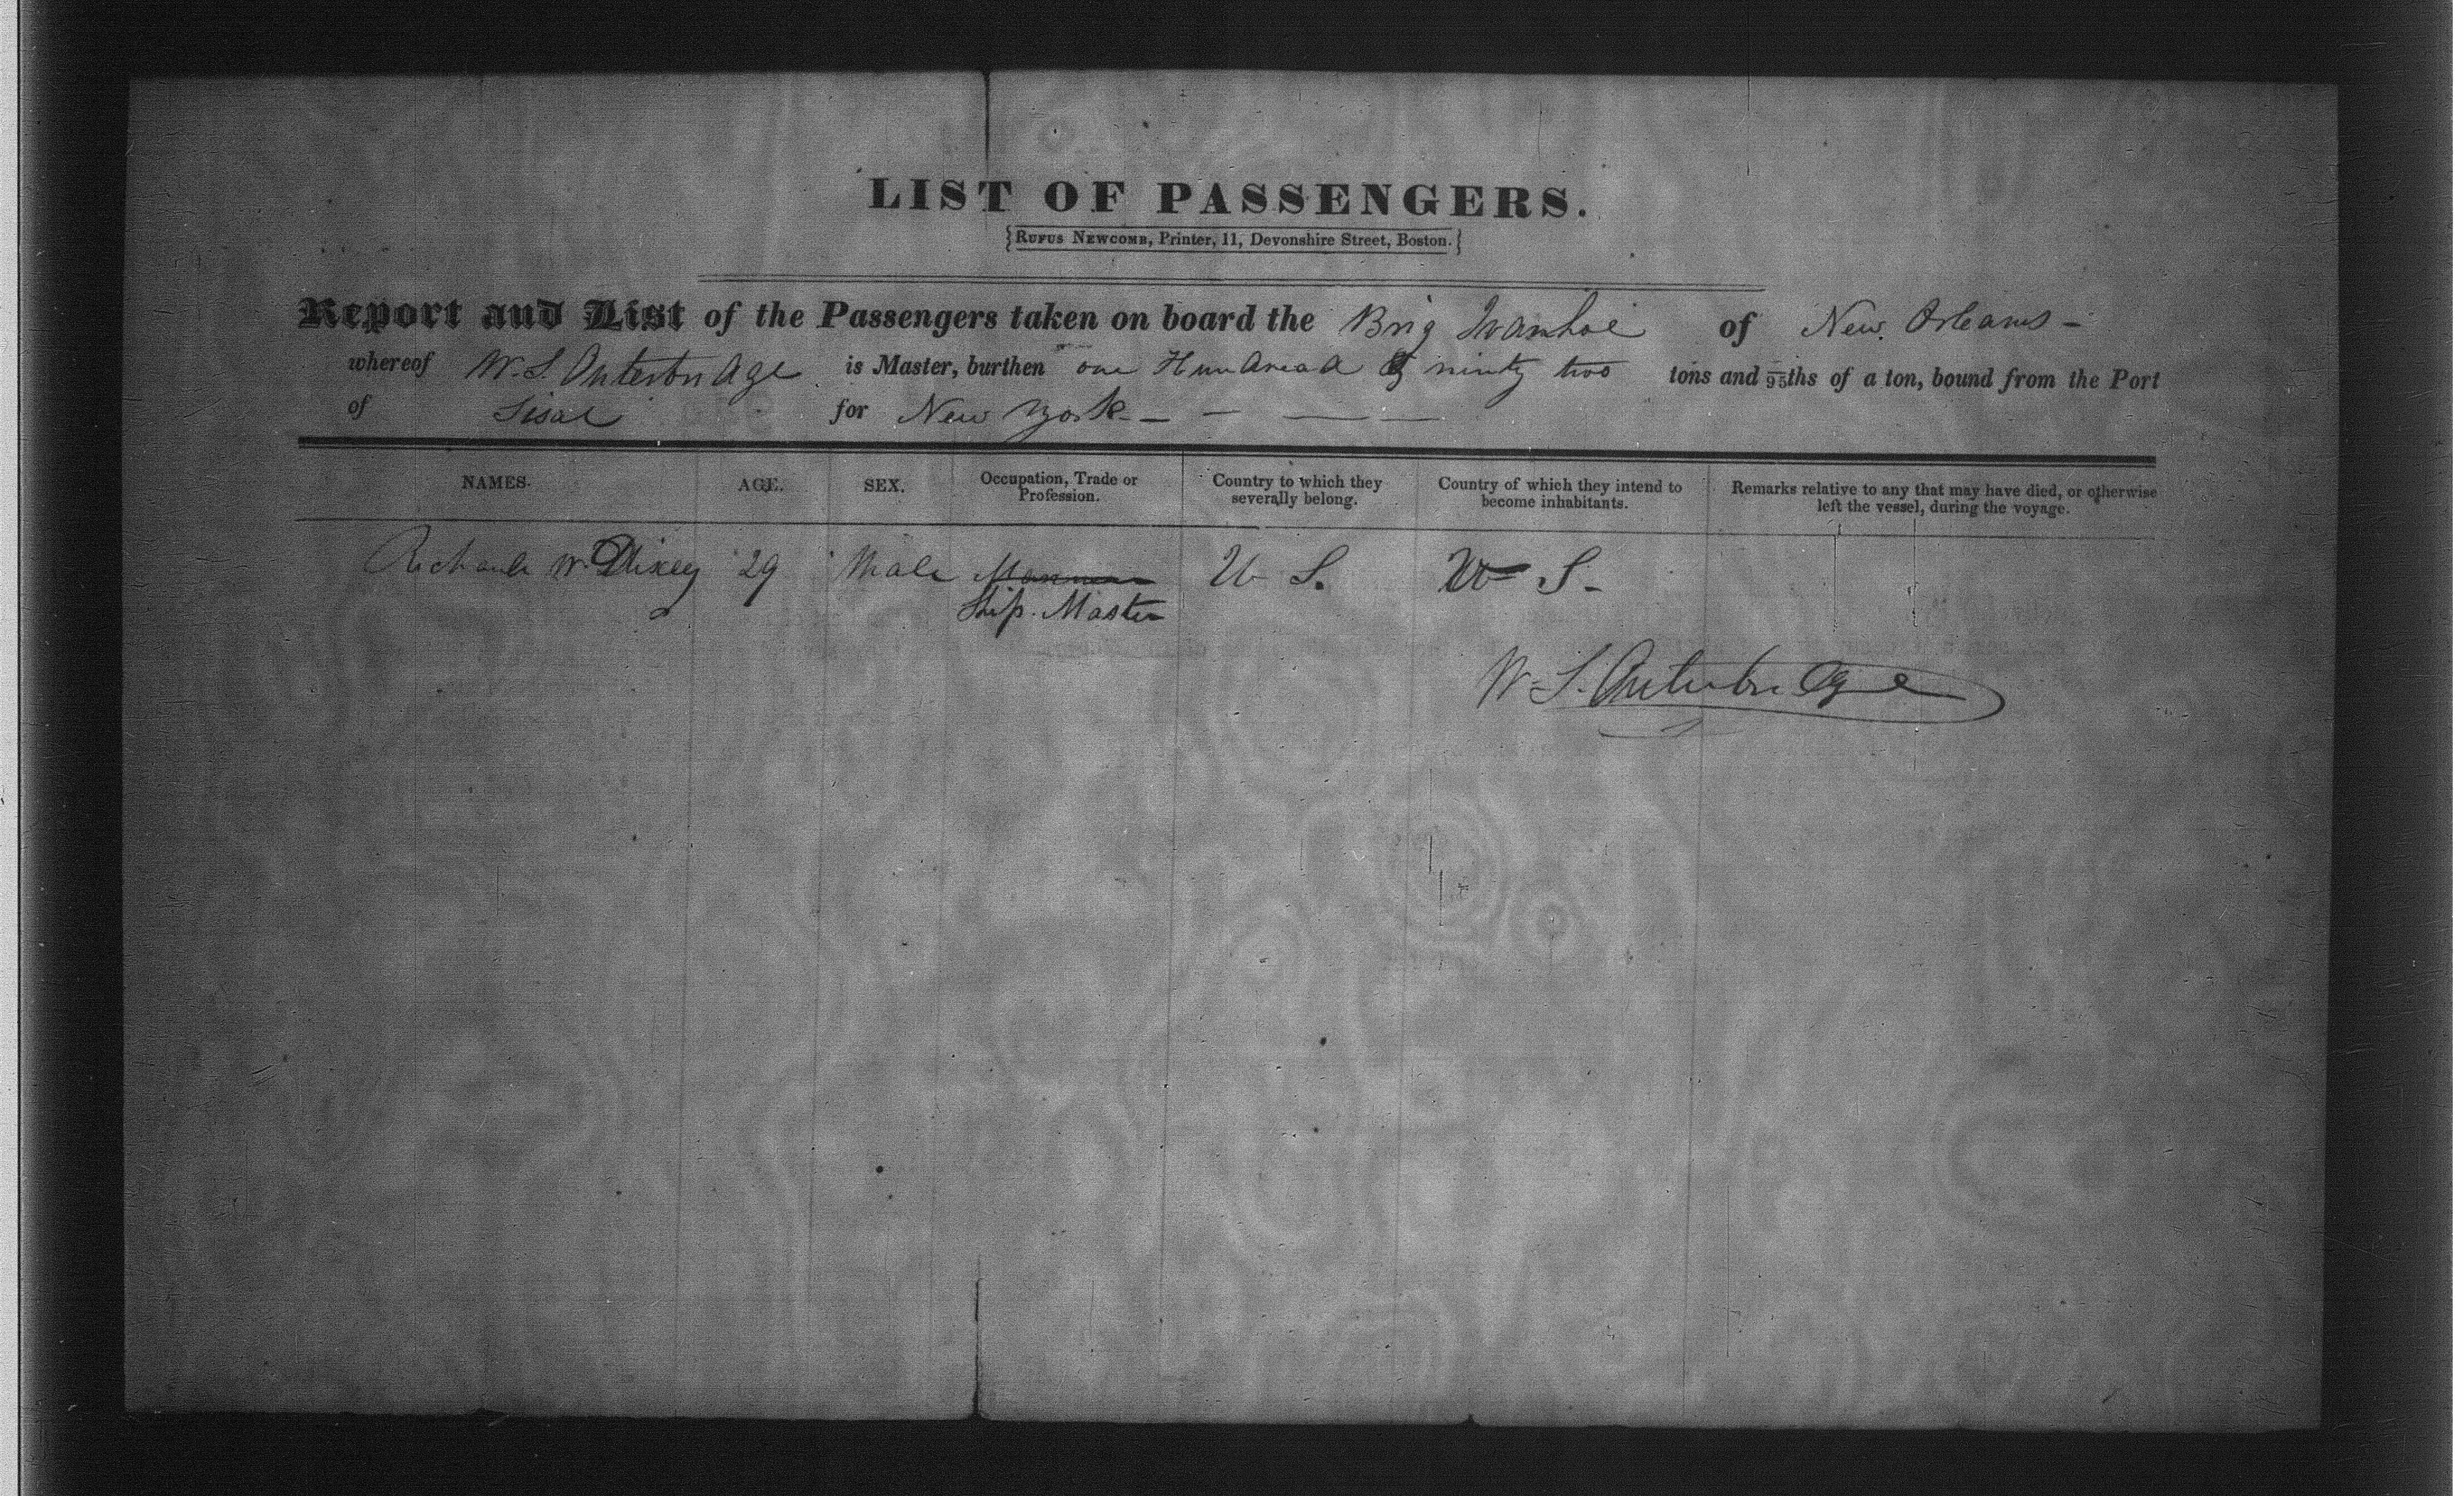 LIST OF PASSENGERS.
{RUFUS NEWCOMB, Printer, 11, Devonshire Street, Boston.}
Report and List of the Passengers taken on board the Brig Ivanhoe of New Orleans -
whereof W. S. Outerbridge is Master, burthen one Hundred & ninty two tons and /95ths of a ton, bound from the Port
of Sisal for New York - - - -
NAMES. AGE. SEX. Occupation, Trade or Profession. Country to which they severally belong. Country of which they intend to become inhabitants. Remarks relative to any that may have died, or otherwise left the vessel, during the voyage.
Richard W. Dixey 29 Male Mariner U S. U S -
Ship Master
W. S. Outerbridge